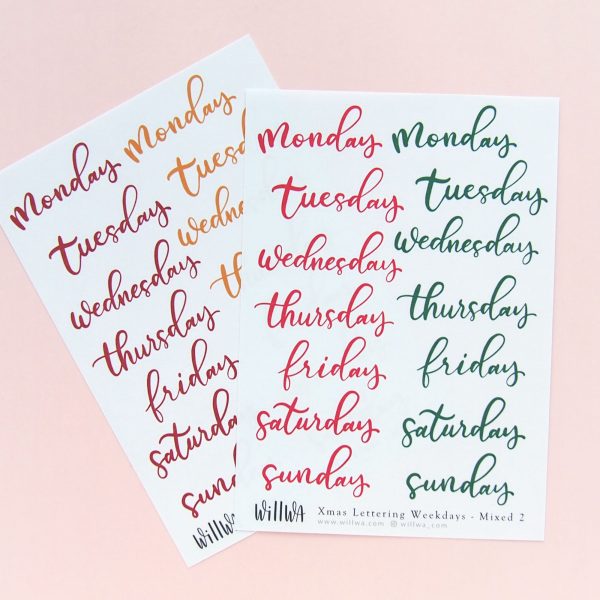 monday monday
tuesday tuesday
wednesday wednesday
thursday thursday
friday friday
saturday saturday
sunday sunday
willwa Xmas Lettering Weekdays - Mixed 2
www.willwa.com willwa_com
monday monday
tuesday
wednesday
thursday
friday
saturday
willwa